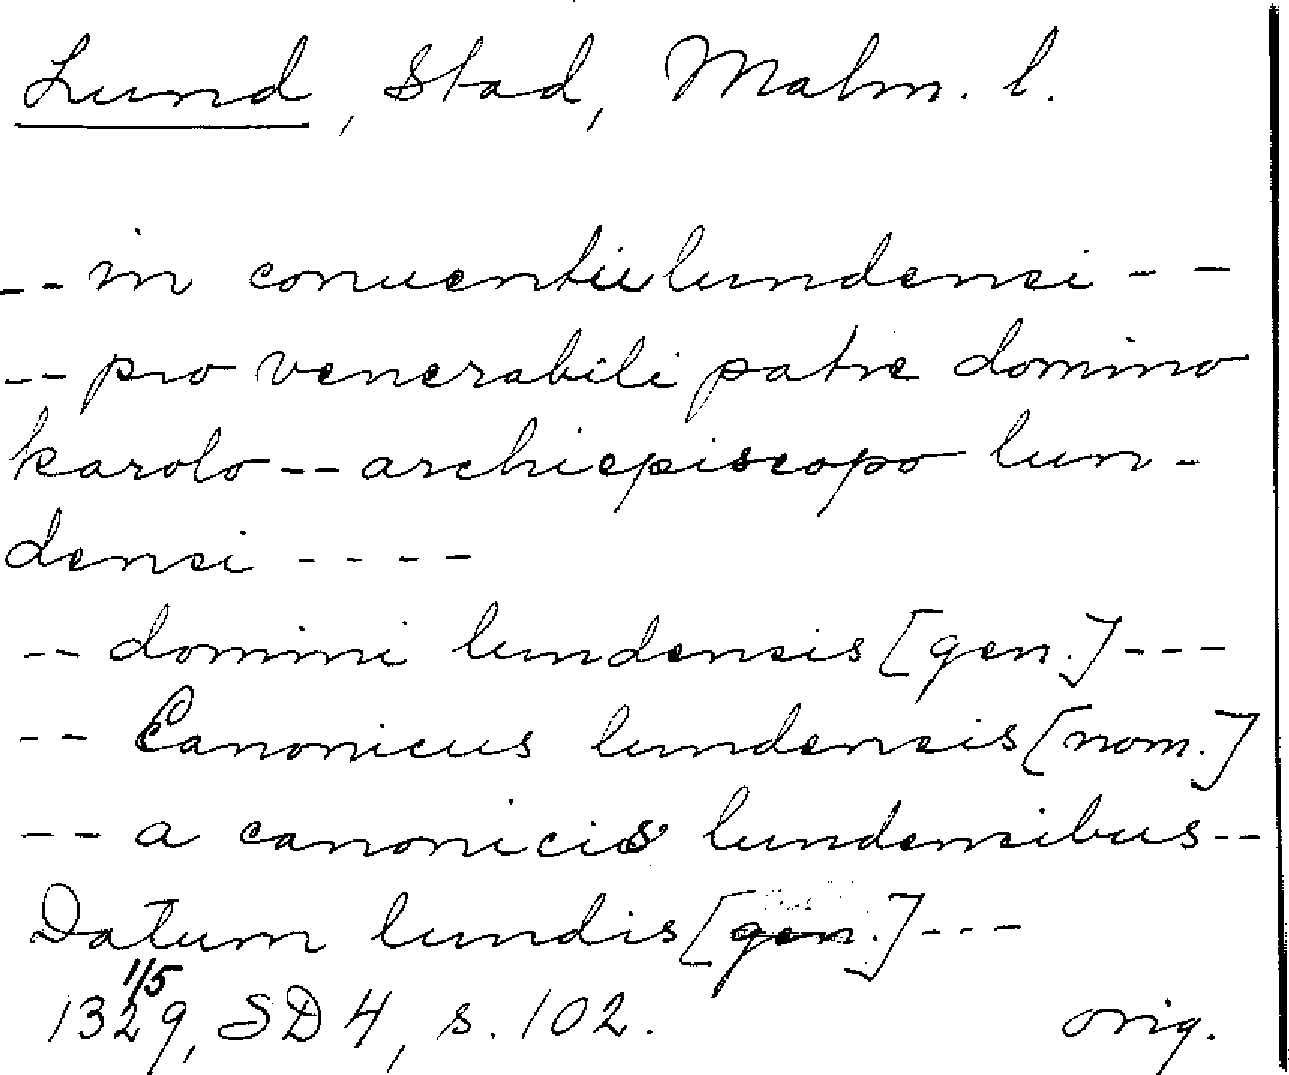 Lund, Stad, Malm. l.
-- in conuentu lundensi --
-- pro venerabili patre domino
karolo -- archiepiscopo lun-
densi ----
-- domini lundensis [gen.] ---
-- Canonicus lundensis [nom.]
-- a canonicis lundensibus --
Datum lundis [gen.] ---
1/5
1329, SD 4, s. 102. orig.